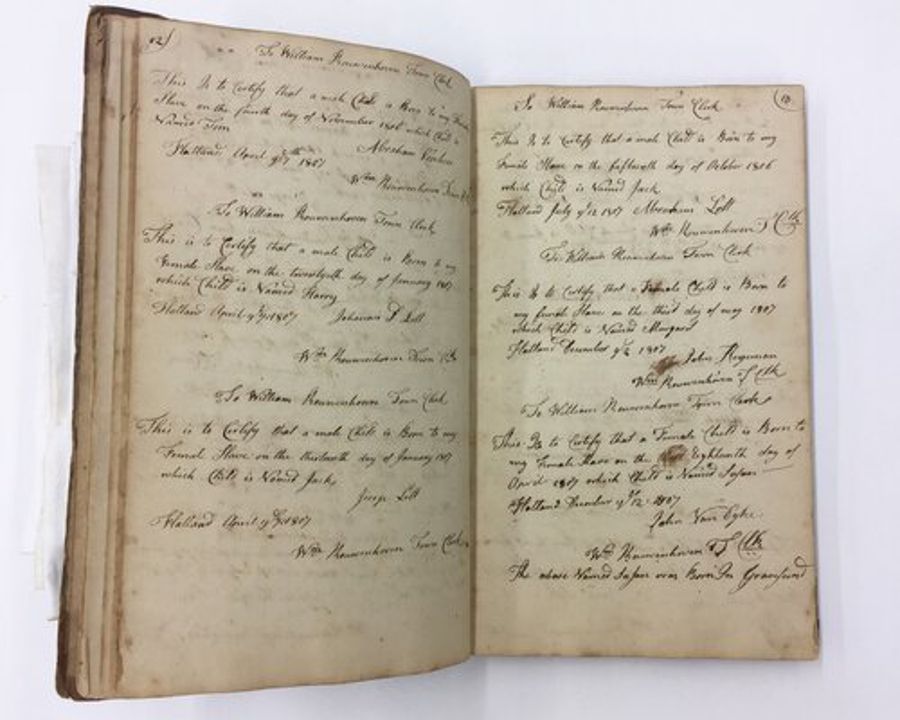 12
To William Kouwenhoven Town Clerk
This Is to Certify that a male Child is Born to my
Slave on the fourth day of November 1806 which Child is
Named Tom
Abraham
Flatland April 1807
Wm Kouwenhoven Town
To William Kouwenhoven Town Clerk
This is to Certify that a male Child is Born to my
Female Slave on the day of January 1807
which Child is Named Harry
Flatland April 1807 Johannes Lott
Wm Kouwenhoven Town Clk
To William Kouwenhoven Town Clerk
This is to Certify that a male Child is Born to my
Female Slave on the thirteenth day of January 1807
which Child is Named Jack
Lott
Flatland April 1807
Wm Kouwenhoven Town Clerk
13
To William Kouwenhoven Town Clerk
This Is to Certify that a male Child is Born to my
Female Slave on the day of October 1806
which Child is Named Jack
Flatland July ye 12 1807 Abraham Lott
Wm Kouwenhoven T Clk
To William Kouwenhoven Town Clerk
This Is to Certify that a Female Child is Born to
my female Slave on the third day of may 1807
which Child is Named Margaret
Flatland December 1807
John
Wm Kouwenhoven T Clk
To William Kouwenhoven Town Clerk
This Is to Certify that a Female Child is Born to
my Female Slave on the Eighteenth day of
April 1807 which Child is Named Susan
Flatland December ye 12 1807
John Van Dyke
Wm Kouwenhoven T Clk
The above Named Susan was Born In Gravesend